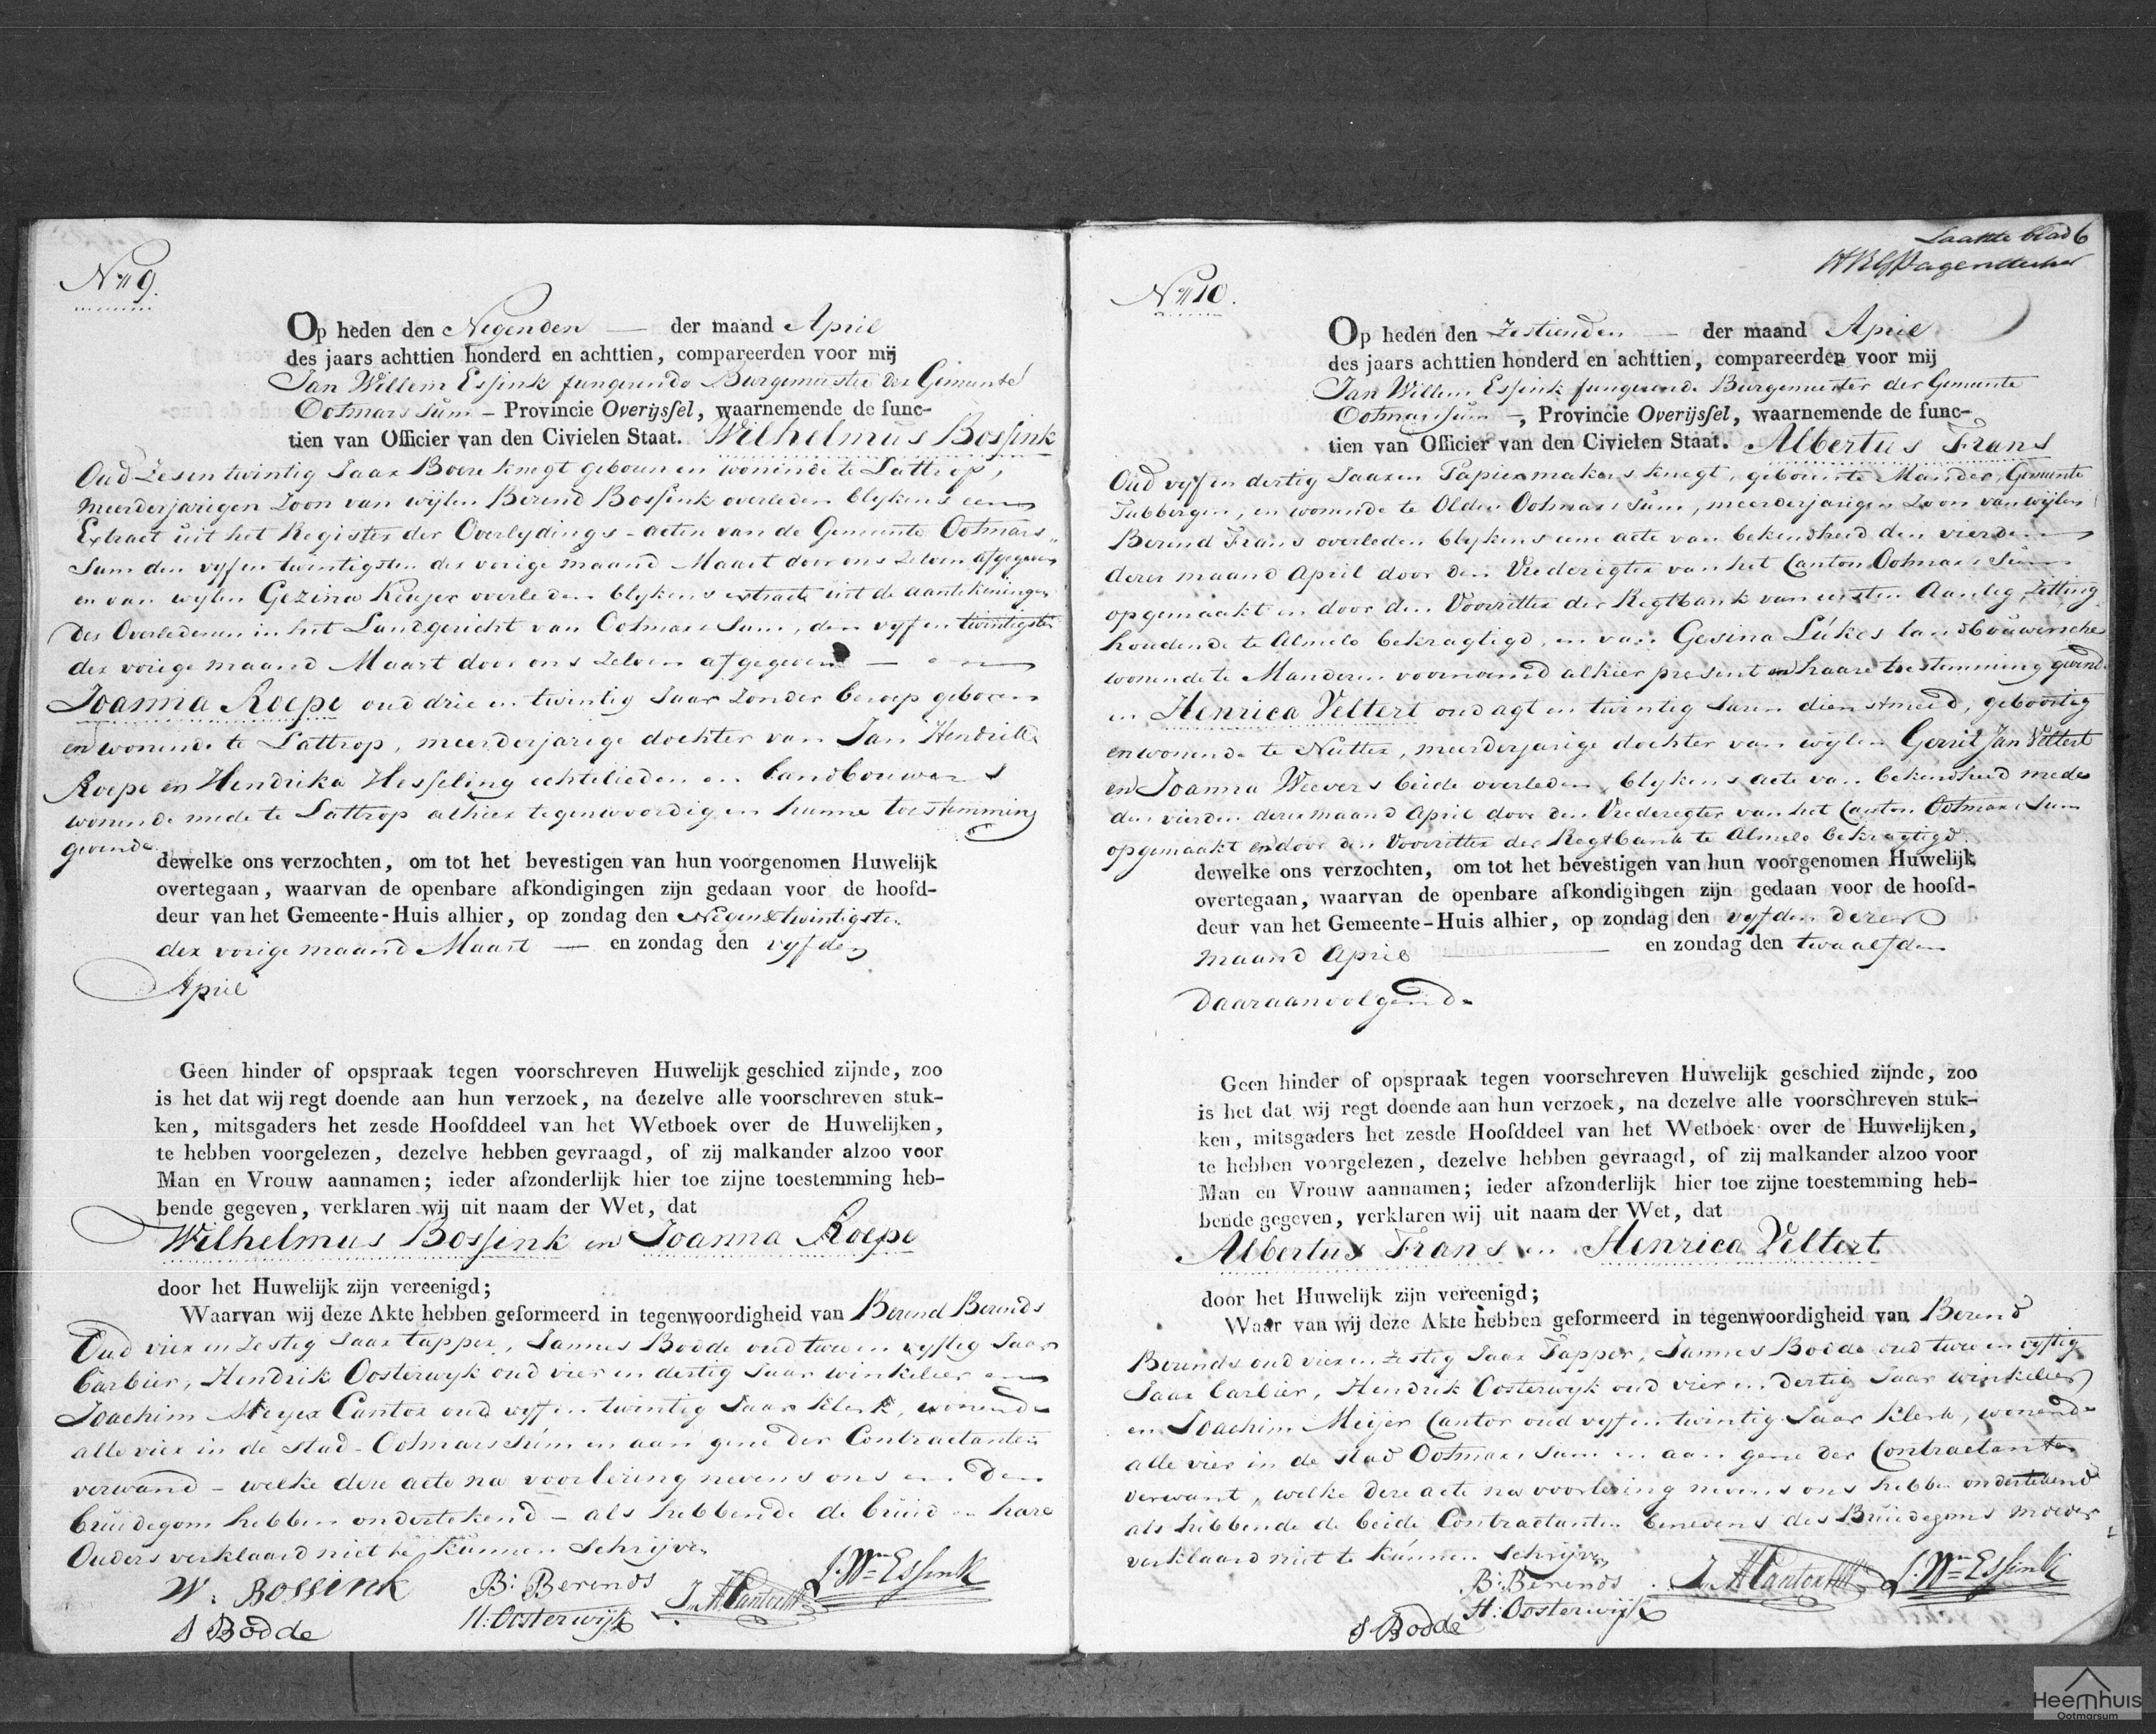 N° 9.
Op heden den Negenden — der maand April
des jaars achttien honderd en achttien, compareerden voor mij
Jan Willem Essink fungerende Burgemeester der Gemeente
Ootmarssum – Provincie Overijssel, waarnemende de func-
tien van Officier van den Civielen Staat. Wilhelmus Bossink
Oud Zesentwintig Jaar Boere knegt geboren en woninde te Lattrop,
meerderjarigen Zoon van wijlen Berend Bossink overleden blykens een
Extract uit het Register der Overlydings-acten van de Gemeente Ootmars„
sum den vyf en twintigsten der vorige maand Maart door ons zelven afgegeven
en van wylen Gezina Keujer overleden blykens extract uit de aantekeningen
der Overledenen in het Landgericht van Ootmarssum, den vyf en twintigsten
der vorige maand Maart door ons zelven afgegeven — en
Joanna Roepe oud drie en twintig Jaar zonder beroep geboren
en wonende te Lattrop, meerderjarige dochter van Jan Hendrik
Roepe en Hendrika Hesseling echtelieden en Landbouwers
wonende mede te Lattrop alhier tegenwoordig en hunne toestemming
gevende
dewelke ons verzochten, om tot het bevestigen van hun voorgenomen Huwelijk
overtegaan, waarvan de openbare afkondigingen zijn gedaan voor de hoofd-
deur van het Gemeente-Huis alhier, op zondag den Negen & twintigsten
der vorige maand Maart — en zondag den vyfden
April
Geen hinder of opspraak tegen voorschreven Huwelijk geschied zijnde, zoo
is het dat wij regt doende aan hun verzoek, na dezelve alle voorschreven stuk-
ken, mitsgaders het zesde Hoofddeel van het Wetboek over de Huwelijken,
te hebben voorgelezen, dezelve hebben gevraagd, of zij malkander alzoo voor
Man en Vrouw aannamen; ieder afzonderlijk hier toe zijne toestemming heb-
bende gegeven, verklaren wij uit naam der Wet, dat
Wilhelmus Bossink en Joanna Roepe
door het Huwelijk zijn vereenigd;
Waarvan wij deze Akte hebben geformeerd in tegenwoordigheid van Berend Berends
Oud vier en zestig Jaar tapper, Jannes Bodde oud twee en vyftig Jaar
barbier, Hendrik Oosterwyk oud vier en dertig Jaar winkelier en
Joachim Meyer Cantor oud vyf en twintig Jaar klerk, wonende
alle vier in de stad Ootmarschum en aan gene der Contractanten
verwand – welke dere acte na voorlezing nevens ons en den
bruidegom hebben ondertekend – als hebbende de bruid en hare
Ouders verklaard niet te kunnen schrijven
W. Bossink
B: Berends
J. M. Cantor
J. Wm Essink
J Bodde
H: Oosterwijk
Laatste blad 6
N° 10.
Op heden den Zestienden — der maand April
des jaars achttien honderd en achttien, compareerden voor mij
Jan Willem Essink fungerende Burgemeester der Gemeente
Ootmarssum —, Provincie Overijssel, waarnemende de func-
tien van Officier van den Civielen Staat. Albertus Frans
Oud vyf en dertig Jaaren Papiermakers knegt, geboren te Mander, Gemeente
Tubbergen, en wonende te Olden Ootmarssum, meerderjarigen Zoon van wijlen
Berend Frans overleden blykens eene acte van bekendheid den vierden
derer maand April door den Vrederegter van het Canton Ootmarssum
opgemaakt en door den Voorzitter der Regtbank van eersten Aanleg Zitting
houdende te Almelo bekragtigd, en van Gesina Lúkes landbouwersche
wonende te Manderen voornoemd alhier present en haare toestemming gevende
en Henrica Veltert oud agt en twintig Jaren dienstmeid, geboortig
en wonende te Nutter, meerderjarige dochter van wylen Gerrit Jan Veltert
en Joanna Weevers beide overleden, blykens acte van bekendheid mede
den vierden derer maand April door den Vrederegter van het Canton Ootmarssum
opgemaakt en door den Voorzitter der Regtbank te Almelo bekragtigd.
dewelke ons verzochten, om tot het bevestigen van hun voorgenomen Huwelijk
overtegaan, waarvan de openbare afkondigingen zijn gedaan voor de hoofd-
deur van het Gemeente-Huis alhier, op zondag den vyfden derer
maand April — en zondag den twaalfden
daaraanvolgende
Geen hinder of opspraak tegen voorschreven Huwelijk geschied zijnde, zoo
is het dat wij regt doende aan hun verzoek, na dezelve alle voorschreven stuk-
ken, mitsgaders het zesde Hoofddeel van het Wetboek over de Huwelijken,
te hebben voorgelezen, dezelve hebben gevraagd, of zij malkander alzoo voor
Man en Vrouw aannamen; ieder afzonderlijk hier toe zijne toestemming heb-
bende gegeven, verklaren wij uit naam der Wet, dat
Albertus Frans en Henrica Veltert
door het Huwelijk zijn vereenigd;
Waar van wij deze Akte hebben geformeerd in tegenwoordigheid van Berend
Berends oud vier en zestig Jaar Tapper, Jannes Bodde oud twee en vyftig
Jaar barbier, Hendrik Oosterwyk oud vier en dertig Jaar winkelier
en Joachim Meijer Cantor oud vyf en twintig Jaar klerk, wonende
alle vier in de stad Ootmarssum en aan gene der Contractanten
verwant, welke dere acte na voorlezing nevens ons hebben ondertekend
als hebbende de beide Contractanten benevens des Bruidegoms moeder
verklaard niet te kunnen schrijven
B: Berends
J. M. Cantor
J. Wm Essink
H: Oosterwijk
J Bodde
Heemhuis
Ootmarsum